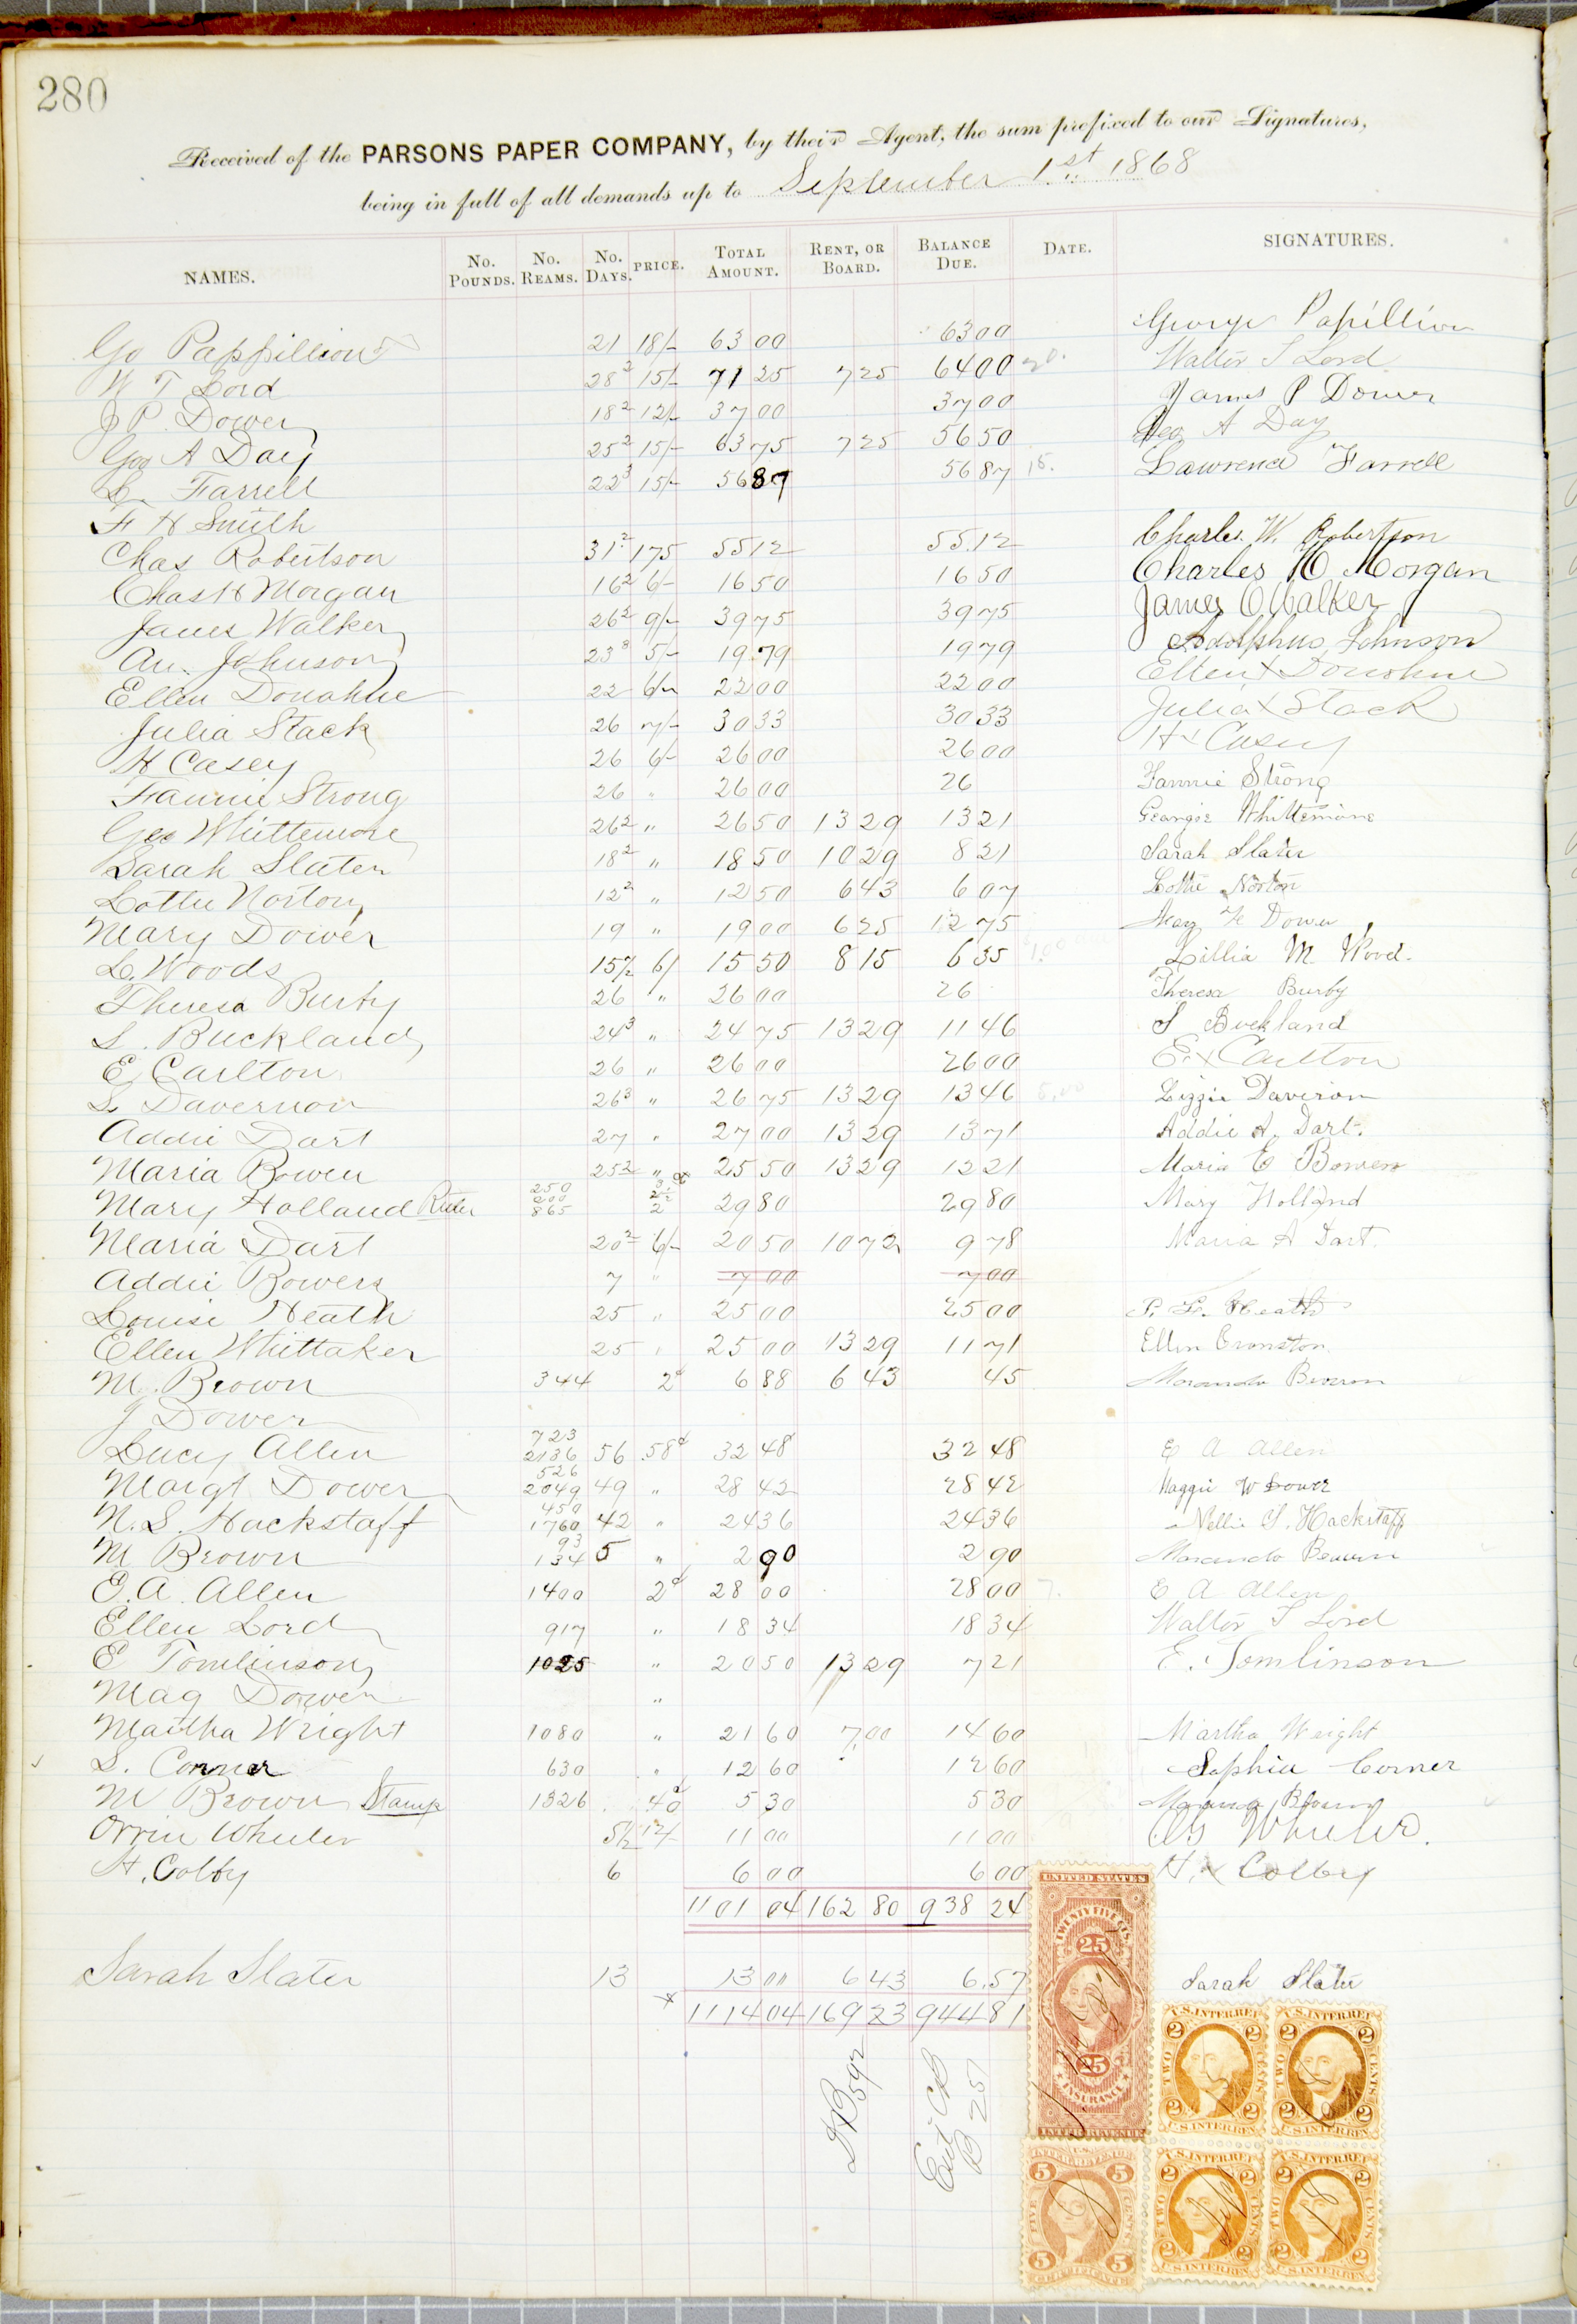 280
Received of the PARSONS PAPER COMPANY, by their Agent, the sum prefixed to our Signatures,
being in full of all demands up to September 1st 1868
NAMES. No. POUNDS. No. REAMS. No. DAYS. PRICE. TOTAL AMOUNT. RENT, OR BOARD. BALANCE DUE. DATE. SIGNATURES.
Go Pappillion 21 18/- 63 00 63 00 George Papillion
W T Lord 28² 15/- 71 25 7 25 64 00 Walter T Lord
J P. Dower 18² 12/- 37 00 37 00 James P Dower
Geo A Day 25² 15/- 63 75 7 25 56 50 Geo A Day
L. Farrell 22³ 15/- 56 87 56 87 18. Lawrence Farrell
F H Smith
Chas Robertson 31² 175 55 12 55.12 Charles W. Robertson
Chas H Morgan 16² 6/- 16 50 16 50 Charles H Morgan
James Walker 26² 9/- 39 75 39 75 James O Walker
Au. Johnson 23³ 5/- 19 79 19 79 Adolphus Johnson
Ellen Donahue 22 6/- 22 00 22 00 Ellen X Donohue
Julia Stack 26 7/- 30 33 30 33 Julia X Stack
H Casey 26 6/- 26 00 26 00 H X Casey
Fannie Strong 26 " 26 00 26 Fannie Strong
Geo Whittemore 26² " 26 50 13 29 13 21 Georgie Whittemore
Sarah Slater 18² " 18 50 10 29 8 21 Sarah Slater
Lottie Norton 12² " 12 50 6 43 6 07 Lottie Norton
Mary Dower 19 " 19 00 6 25 12 75 Mary Dower
L. Woods 15½ 6/ 15 50 8 15 6 35 Lillia M Wood.
Theresa Burby 26 " 26 00 26 Theresa Burby
S. Buckland 24³ " 24 75 13 29 11 46 S Buckland
E Carlton 26 " 26 00 26 00 E. X Carlton
L. Davernon 26³ " 26 75 13 29 13 46 5,00 Lizzie Daveron
Addie Dart 27 " 27 00 13 29 13 71 Addie A. Dart.
Maria Bowen 25² " 25 50 13 29 12 21 Maria E Bowers
250
200
Mary Holland Ruler 865 2 29 80 29 80 Mary Holland
Maria Dart 20² 6/- 20 50 10 72 9 78 Maria A Dart.
Addie Bowers 7 " 7 00 7 00
Louise Heath 25 " 25 00 25 00 P. L. Heath
Ellen Whittaker 25 " 25 00 13 29 11 71 Ellen
M. Brown 344 2¢ 6 88 6 43 45 Brown
J Dower
723
Lucy Allen 2136 56 .58¢ 32 48 32 48 E A Allen
526
Margt Dower 2049 49 " 28 42 28 42 Maggie W Dower
450
N. S. Hackstaff 1760 42 " 24 36 24 36 Nellie S. Hackstaff
93
M Brown 134 5 " 2 90 2 90 Brown
E. A. Allen 1400 2¢ 28 00 28 00 7. E A Allen
Ellen Lord 917 " 18 34 18 34 Walter T Lord
E Tomlinson 1025 " 20 50 13 29 7 21 E. Tomlinson
Mag Dower "
Martha Wright 1080 " 21 60 7,00 14 60 Martha Wright
S. Corner 630 " 12 60 12 60 Sophia Corner
M Brown Stamp 1326 5 30 5 30 Brown
Orrin Wheeler 5½ 12/- 11 00 11 00 Wheeler.
H. Colby 6 6 00 6 00 H. X Colby
1101 04 162 80 938 24
Sarah Slater 13 13 00 6 43 6.57 Sarah Slater
1114 04 169 23 944 81
UNITED STATES
TWENTY FIVE CTS.
25
25
INSURANCE
INTER. REVENUE
U.S. INTER. REV.
2 2
TWO CENTS
2 2
U.S. INTER. REV.
U.S. INTER. REV.
2 2
TWO CENTS
2 2
U.S. INTER. REV.
INTER. REVENUE
5 5
FIVE CENTS
5 5
CERTIFICATE
U.S. INTER. REV.
2 2
TWO CENTS
2 2
U.S. INTER. REV.
U.S. INTER. REV.
2 2
TWO CENTS
2 2
U.S. INTER. REV.
Ent CB
251